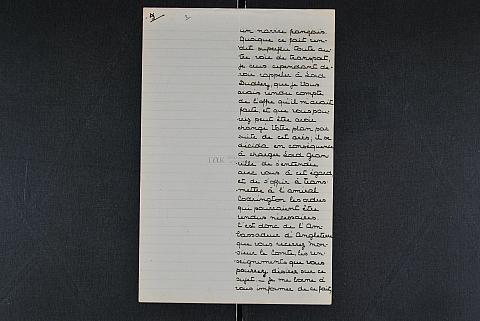 3
un navire français.
Quoique ce fait ren-
dit superflu toute au-
tre voie de transport,
je crus cependant de-
voir rappeler à Lord
Dudley, que je Vous
avais rendu compte
de l'offre qu'il m'avait
faite, et que vous pou-
viez peut être avoir
changé Votre plan par
suite de cet avis; il se
décida en conséquence
à charger Lord Gran
ville de s'entendre
avec vous à cet égard
et de s'offrir à trans-
mettre à l'amiral
Codrington les ordres
qui pourraient être
rendus nécessaires.
C'est donc de l'Am
bassadeur d'Angleterre
que vous recevrez Mon-
sieur le Comte, les ren-
seignements que vous
pourrez désirer sur ce
sujet. — je me borne à
vous informer de ce fait,